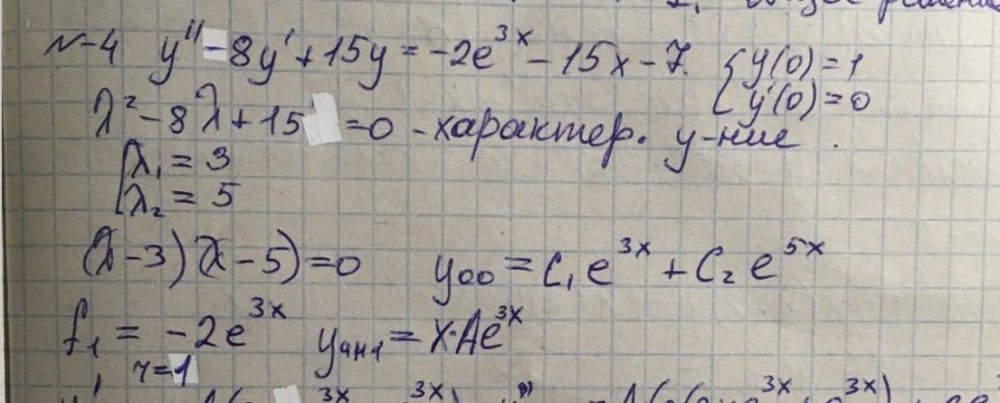 2. общее решение
N-4 y'' - 8y' + 15y = -2e^{3x} - 15x - 7. { y(0) = 1
{ y'(0) = 0
λ² - 8λ + 15 = 0 - характер. у-ние.
[ λ₁ = 3
[ λ₂ = 5
(λ - 3)(λ - 5) = 0 y₀₀ = C₁e^{3x} + C₂e^{5x}
f₁ = -2e^{3x} y_{ан1} = x·Ae^{3x}
r = 1